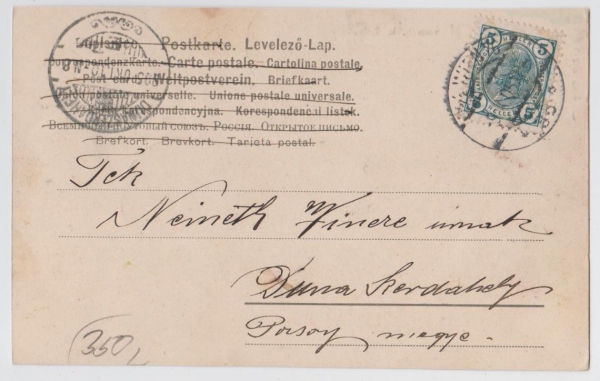 Postkarte. Levelező-Lap.
Correspondenzkarte. Carte postale. Cartolina postale.
Post card. Weltpostverein. Briefkaart.
Union postale universelle. Unione postale universale.
korespondencyjna. Korespondencni listek.
Всемирный почтовый союзъ. Россія. Открытое письмо.
Brefkort. Brevkort. Tarjeta postal.
5 5
Tck
Németh Vincre urnak
Duna Serdahely
Pozsony megye.
350